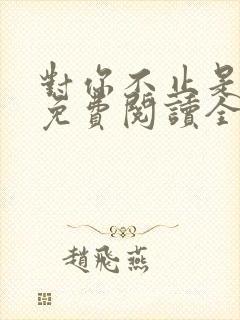 對你不止是
免費閱讀全
趙飛燕